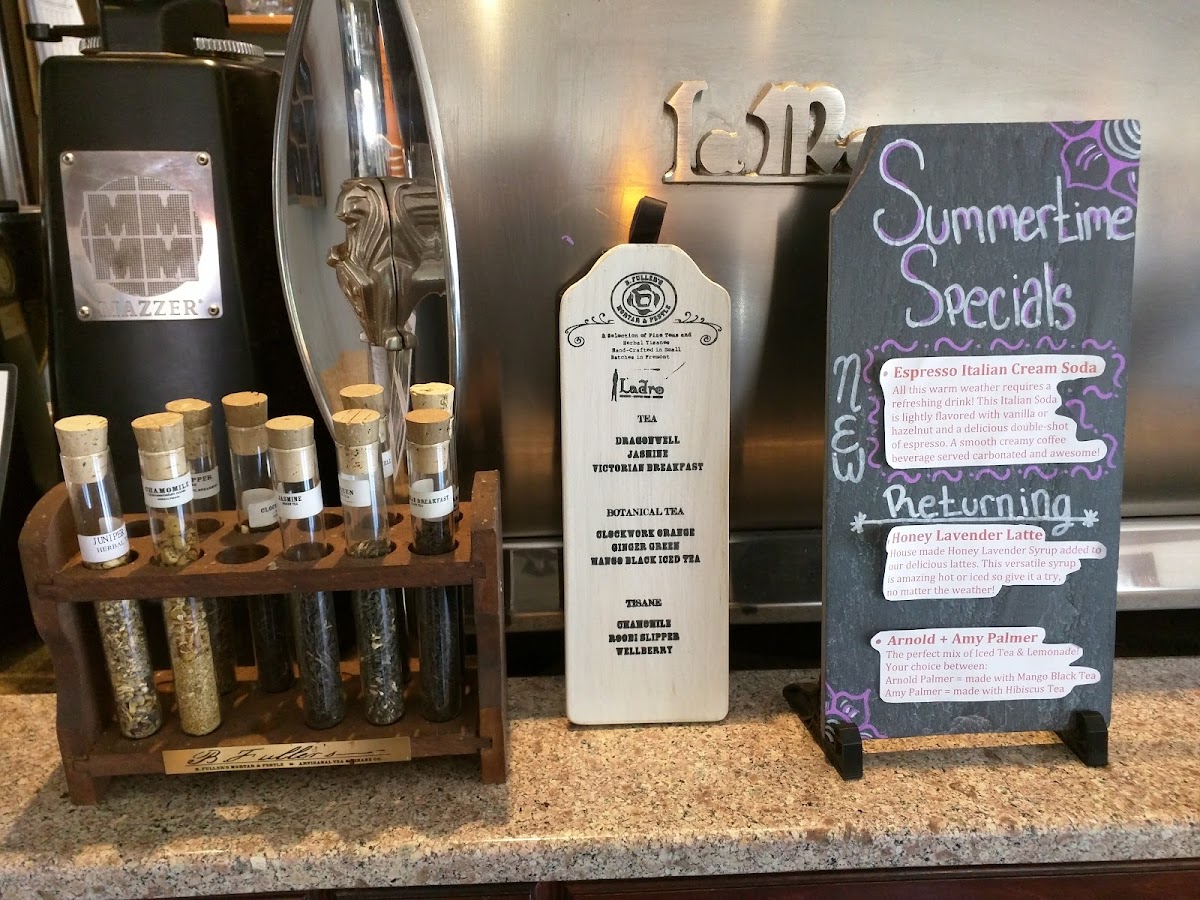 MAZZER®
JUNIPER
HERBAL
CHAMOMILE
JASMINE
B Fuller's
B. FULLER'S MORTAR & PESTLE ARTISANAL TEA
La
B. FULLER'S
MORTAR & PESTLE
A Selection of Fine Teas and
Herbal Tisanes
Hand-Crafted in Small
Batches in Fremont
Ladro
TEA
DRAGONWELL
JASMINE
VICTORIAN BREAKFAST
BOTANICAL TEA
CLOCKWORK ORANGE
GINGER GREEN
MANGO BLACK ICED TEA
TISANE
CHAMOMILE
ROOBI SLIPPER
WELLBERRY
Summertime
Specials
NEW
• Espresso Italian Cream Soda
All this warm weather requires a
refreshing drink! This Italian Soda
is lightly flavored with vanilla or
hazelnut and a delicious double-shot
of espresso. A smooth creamy coffee
beverage served carbonated and awesome!
Returning
Honey Lavender Latte
House made Honey Lavender Syrup added to
our delicious lattes. This versatile syrup
is amazing hot or iced so give it a try,
no matter the weather!
• Arnold + Amy Palmer
The perfect mix of Iced Tea & Lemonade!
Your choice between:
Arnold Palmer = made with Mango Black Tea
Amy Palmer = made with Hibiscus Tea